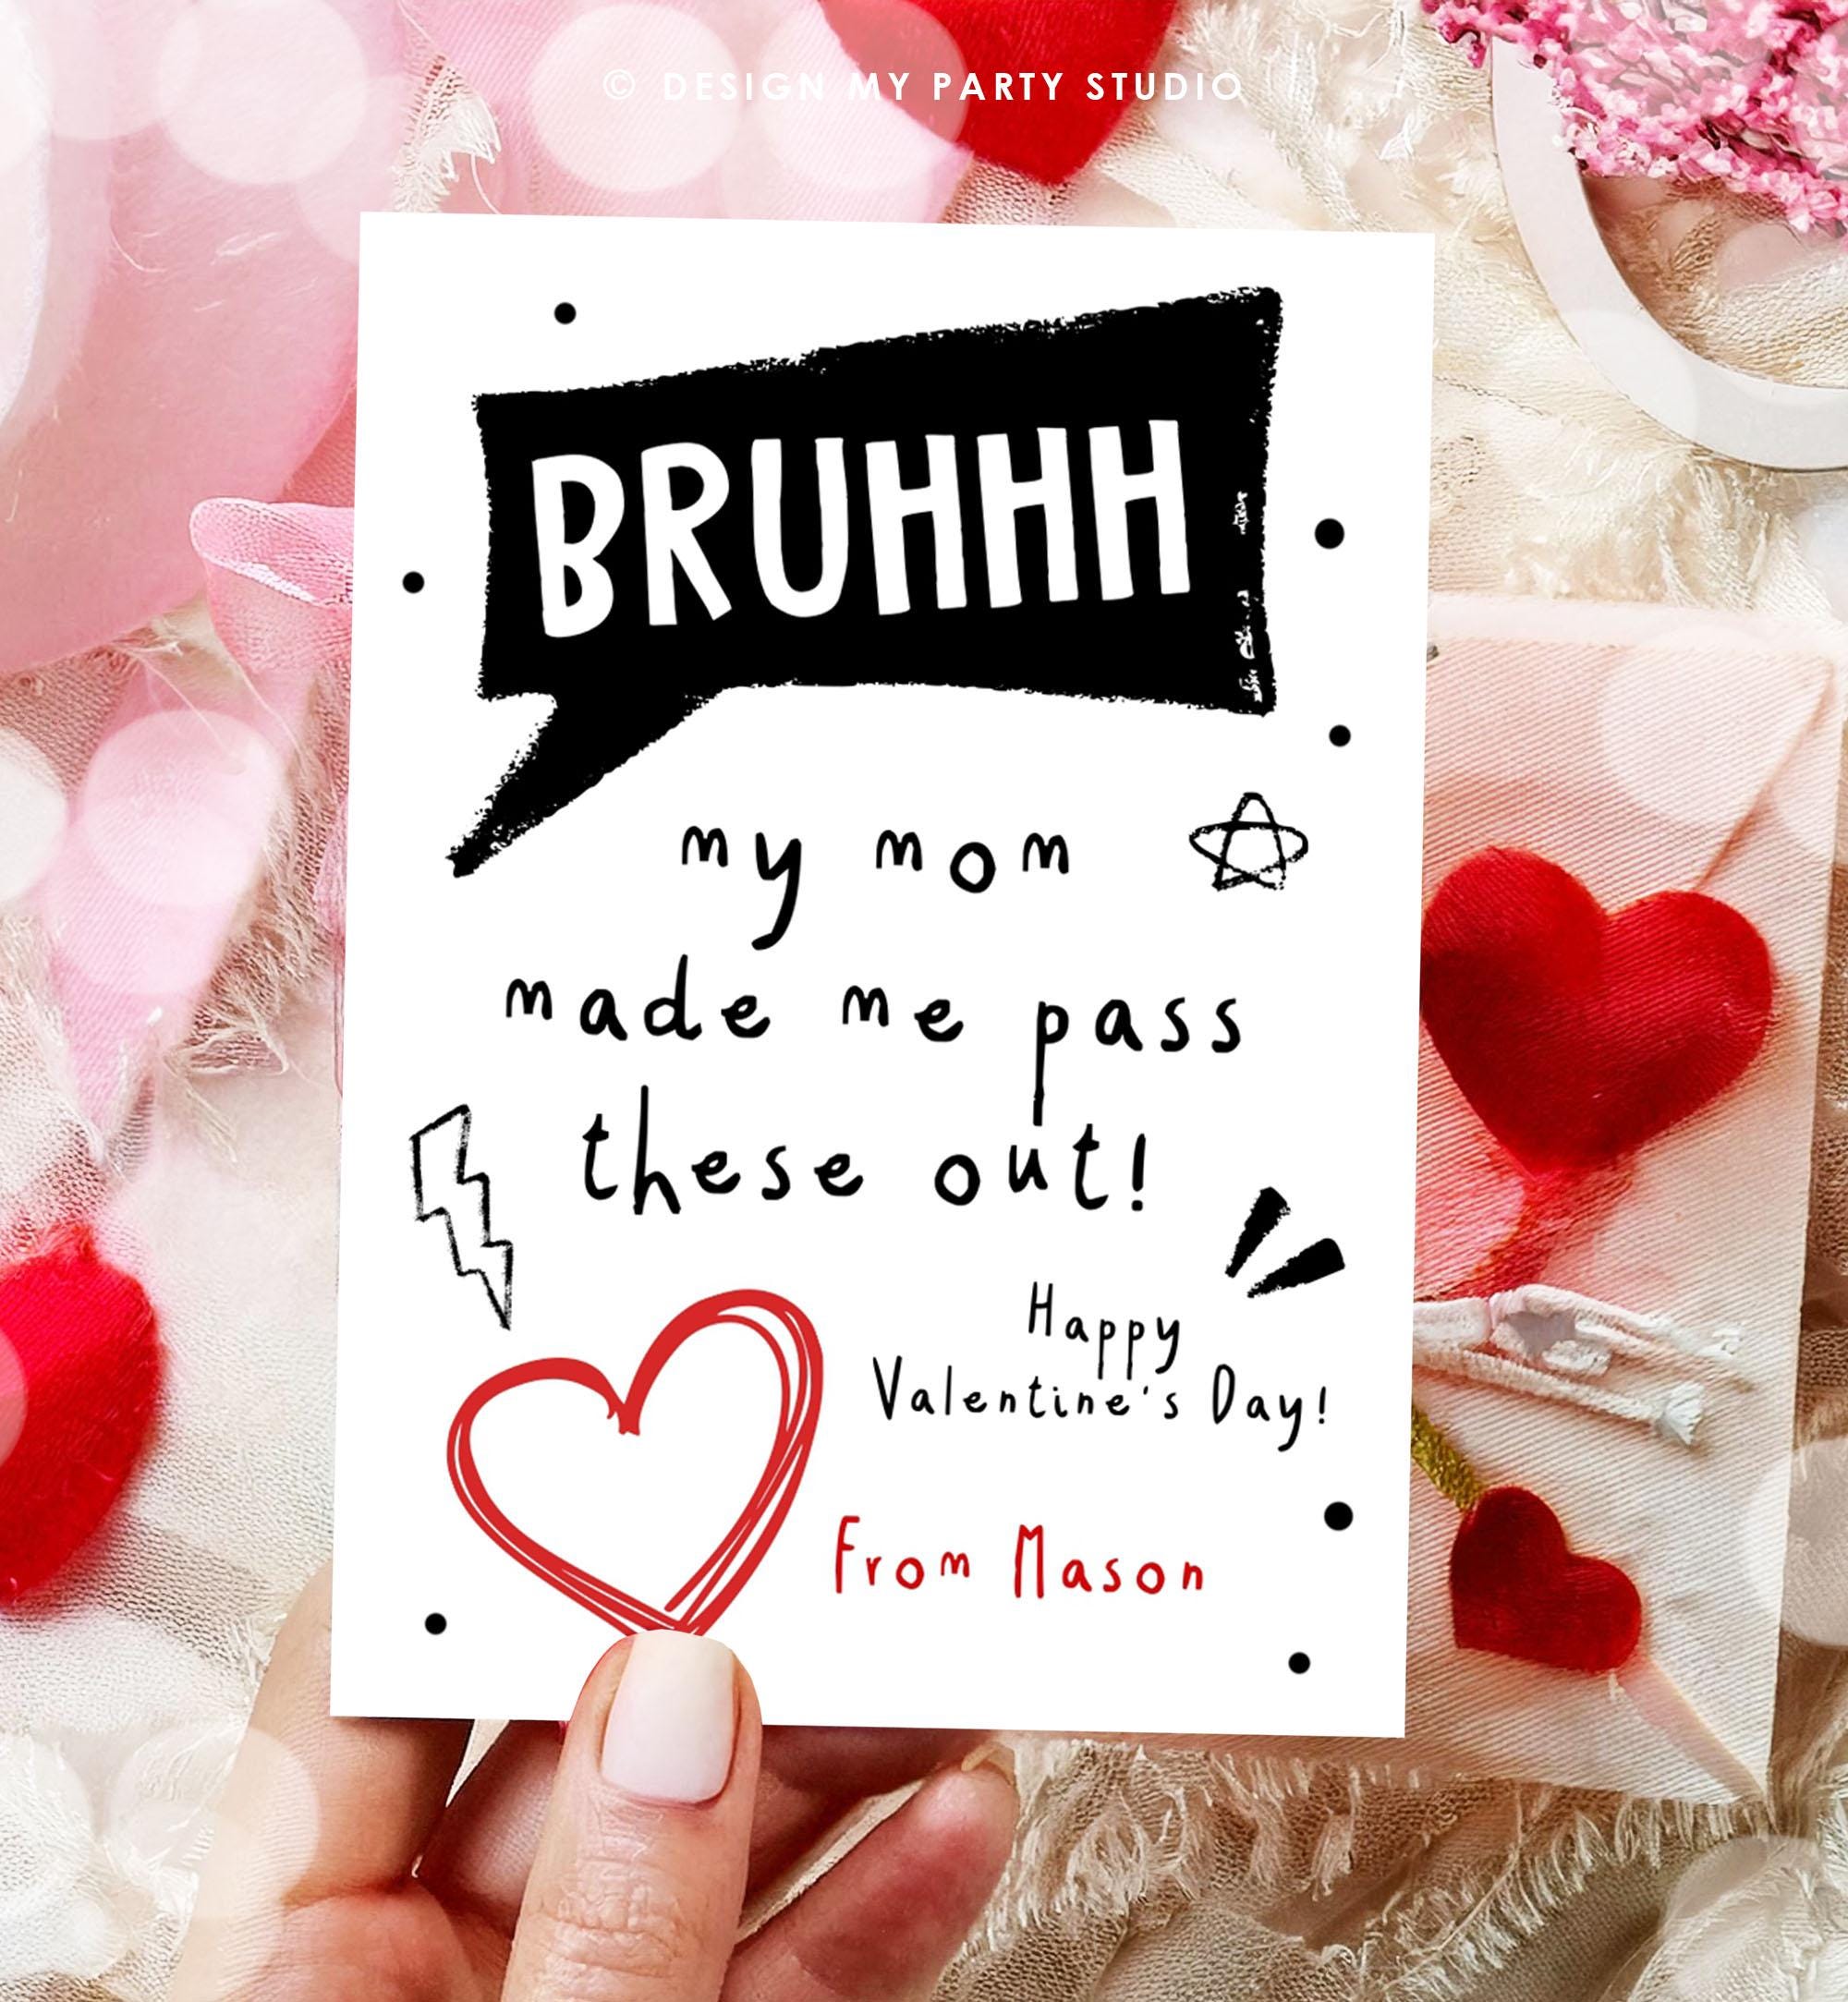 © DESIGN MY PARTY STUDIO
BRUHHH
my mom
made me pass
these out!
Happy
Valentine's Day!
From Mason